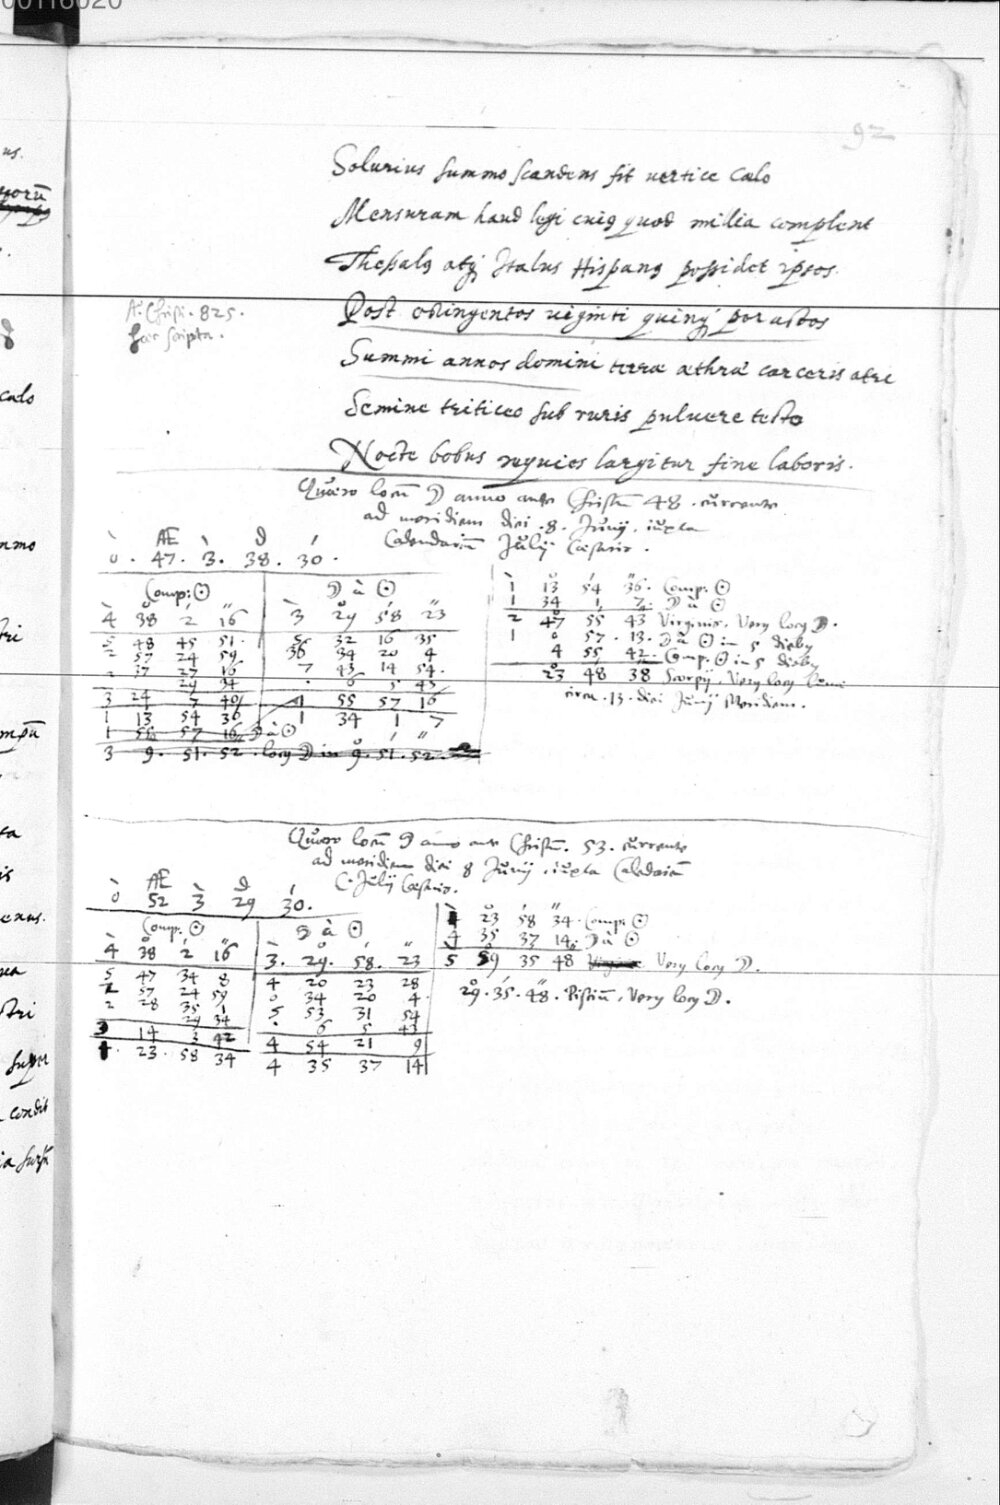 92
Solurius summo scandens sit vertice cælo
Mensuram haud legi cuiq quod millia complent
Theßalq atq Italus Hispanq poßidet ipsos.
A. Christi. 825.
hæc scripta.
Post octingentos viginti quinq peractos
Summi annos domini terræ æthræ carceris atri
Semine triticeo sub ruris puluere tecto
Nocte bobus requies largitur fine laboris.
Quæro locū ☽ anno ante Christū 48. currente
ad meridiem diei .8. Junij. iuxta
Calendariū Julij Cæsaris.
AE d
0. 47. 3. 38. 30.
Comp: ☉
4 38 2 16
5 48 45 51.
2 57 24 59
2 37 27 16
29 34
3 24 7 40
1 13 54 36
1 55 57 16 ☽ à ☉
3 9. 51. 52. locq ☽ in 9. 51. 52.
☽ à ☉
3 29 58 23
5 32 16 35
36 34 20 4
7 43 14 54.
6 5 43
1 55 57 16
1 34 1 7
1 13 54 36. Comp: ☉
1 34 1 7. ☽ à ☉
2 47 55 43 Virginis. Verq locq ☽.
1 0 57. 13. ☽ à ☉ in 5 diebq
4 55 42. Comp. ☉ in 5 diebq
23 48 38 Scorpij. Verq locq Lunæ
circa .13. diei Junij Meridiem.
Quæro locū ☽ anno ante Christū. 53. currente
ad meridiem diei 8 Junij. iuxta Caledariū
C. Julij Cæsaris.
AE d
0 52 3 29 30.
Comp. ☉
4 38 2 16
5 47 34 8
2 57 24 59
2 28 35 1
29 34
3 14 3 42
4. 23. 58 34
☽ à ☉
3. 29. 58. 23
4 20 23 28
0 34 20 4.
5 53 31 54
6 5 43
4 54 21 9
4 35 37 14
4 23 58 34. Comp: ☉
4 35 37 14. ☽ à ☉
5 59 35 48 Verq locq ☽.
29. 35. 48. Pistiū. Verq locq ☽.